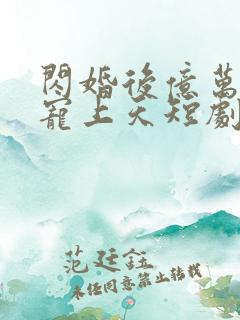 閃婚後億萬
寵上天短劇
范廷鈺
未经同意禁止转载